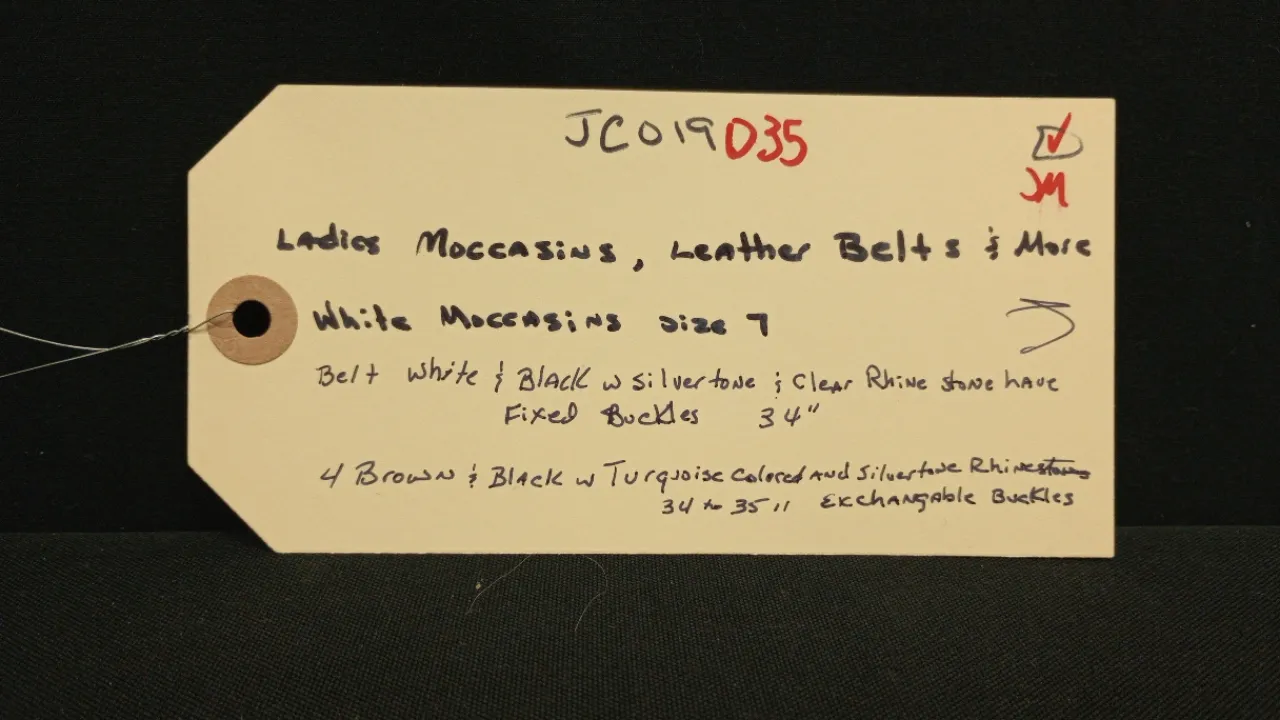 JC019D35
JM
Ladies Moccasins, Leather Belts & More
White Moccasins size 7
Belt White & Black w silvertone & Clear Rhine stone have
Fixed Buckles 34"
4 Brown & Black w Turquoise colored and silvertone Rhinestones
34 to 35" Exchangable Buckles